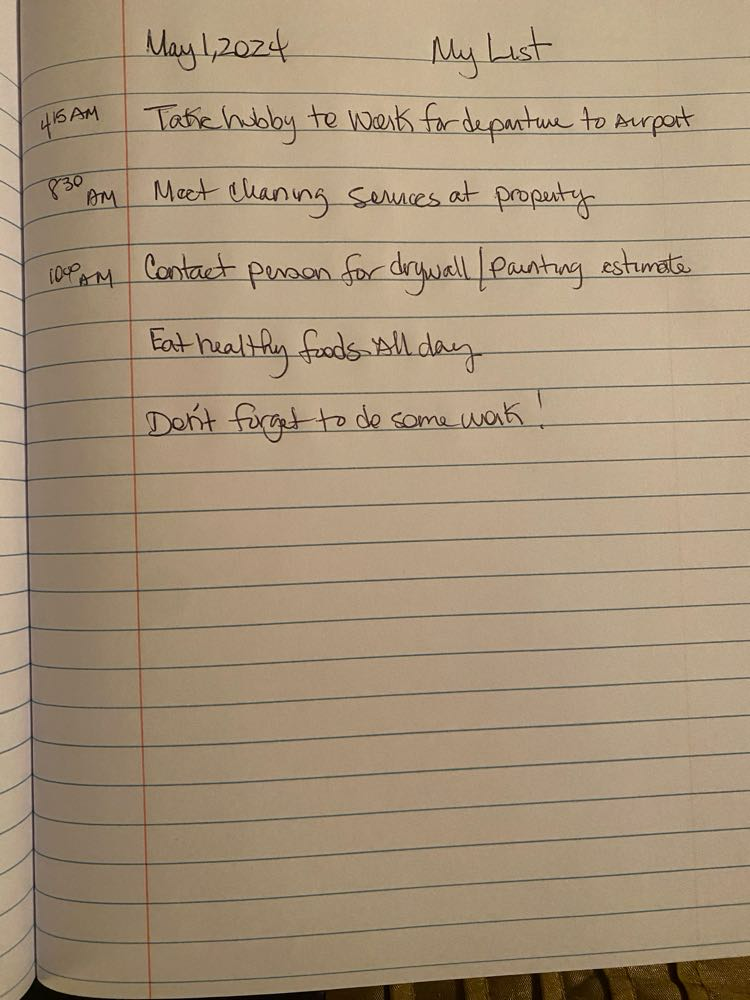 May 1, 2024 My List
4:15 AM Take hubby to work for departure to Airport
8:30 AM Meet cleaning services at property
10:00 AM Contact person for drywall / Painting estimate
Eat healthy foods All day
Don't forget to do some work!